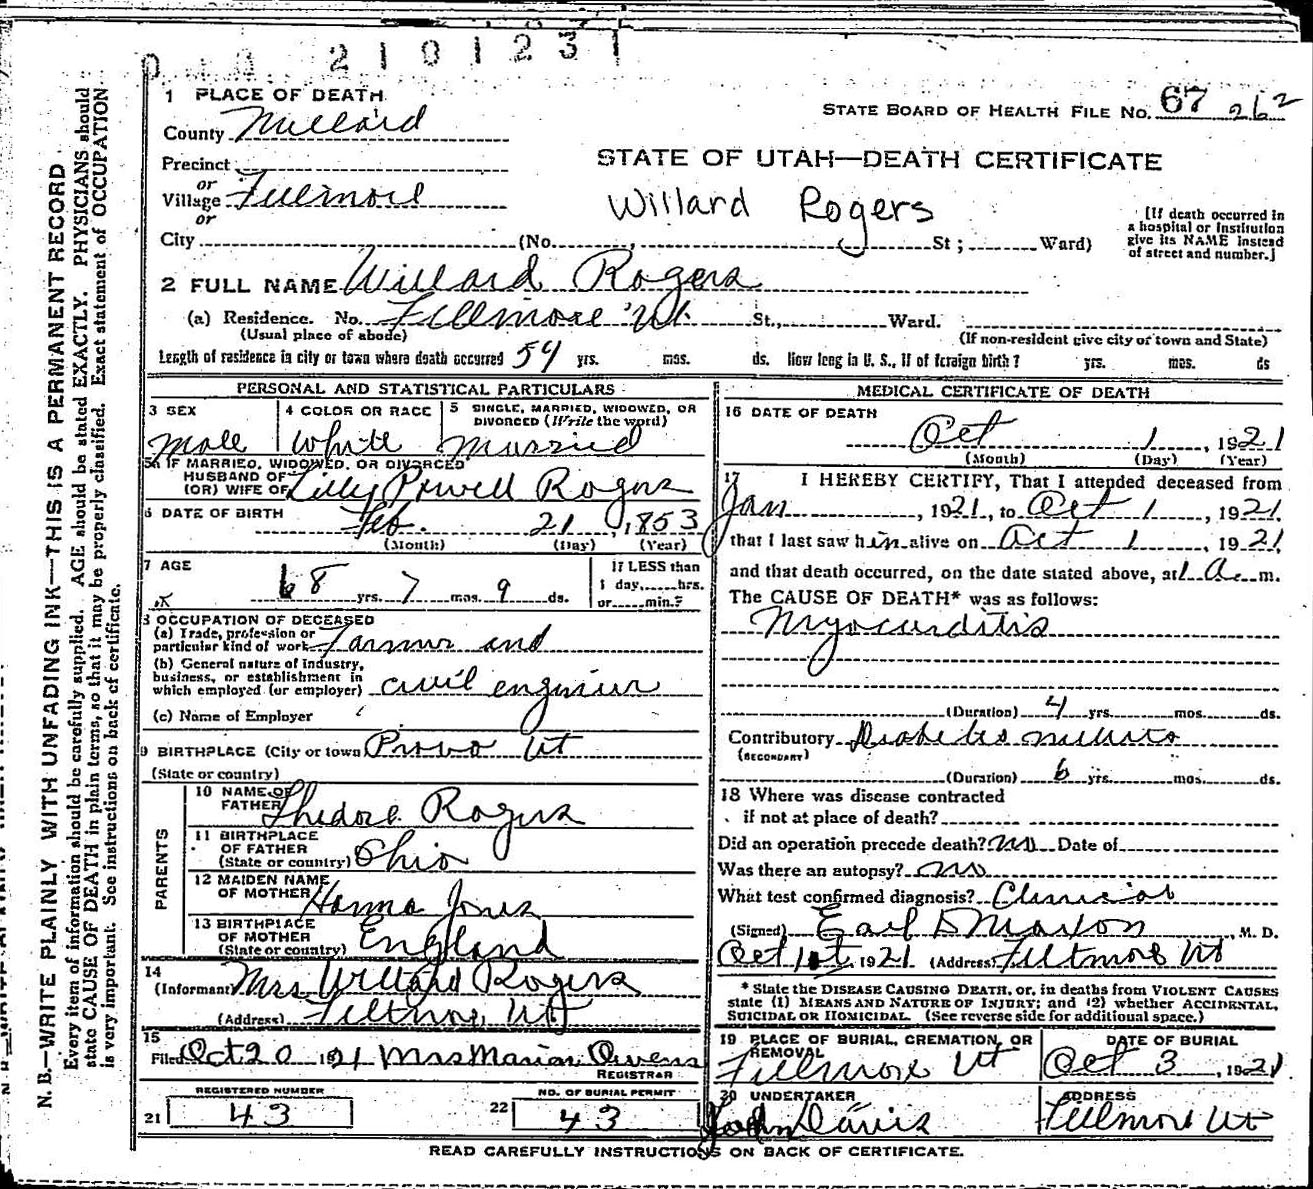 2101231
1 PLACE OF DEATH
STATE BOARD OF HEALTH FILE NO. 67 262
County Millard
Precinct
or
STATE OF UTAH—DEATH CERTIFICATE
Village Fillmore
or
Willard Rogers
[If death occurred in a hospital or institution give its NAME instead of street and number.]
City (No. , St; Ward)
2 FULL NAME Willard Rogers
(a) Residence. No. Fillmore Ut. St., Ward.
(Usual place of abode) (If non-resident give city or town and State)
Length of residence in city or town where death occurred 54 yrs. mos. ds. How long in U. S., if of foreign birth? yrs. mos. ds
PERSONAL AND STATISTICAL PARTICULARS
3 SEX Male
4 COLOR OR RACE White
5 SINGLE, MARRIED, WIDOWED, OR DIVORCED (Write the word) Married
5a IF MARRIED, WIDOWED, OR DIVORCED
HUSBAND OF
(OR) WIFE OF Lilly Powell Rogers
6 DATE OF BIRTH Feb. 21, 1853
(Month) (Day) (Year)
7 AGE 68 yrs. 7 mos. 9 ds.
If LESS than 1 day, hrs. or min.?
8 OCCUPATION OF DECEASED
(a) Trade, profession or particular kind of work Farmer and
(b) General nature of industry, business, or establishment in which employed (or employer) civil engineer
(c) Name of Employer
9 BIRTHPLACE (City or town Provo Ut
(State or country)
PARENTS
10 NAME OF FATHER Thedore Rogers
11 BIRTHPLACE OF FATHER (State or country) Ohio
12 MAIDEN NAME OF MOTHER Hanna Jones
13 BIRTHPLACE OF MOTHER (State or country) England
14 (Informant Mrs Willard Rogers
(Address) Fillmore Ut
15 Filed Oct 20 1921 Mrs Marian Owens
REGISTRAR
21 REGISTERED NUMBER 43
22 NO. OF BURIAL PERMIT 43
MEDICAL CERTIFICATE OF DEATH
16 DATE OF DEATH
Oct 1, 1921
(Month) (Day) (Year)
17 I HEREBY CERTIFY, That I attended deceased from
Jan, 1921, to Oct 1, 1921
that I last saw him alive on Oct 1, 1921
and that death occurred, on the date stated above, at 1 a. m.
The CAUSE OF DEATH* was as follows:
Myocarditis
(Duration) 4 yrs. mos. ds.
Contributory Diabetes mellitis
(SECONDARY)
(Duration) 6 yrs. mos. ds.
18 Where was disease contracted
if not at place of death?
Did an operation precede death? no Date of
Was there an autopsy? no
What test confirmed diagnosis? Clinical
(Signed) Earl D Maxon, M. D.
Oct 1st, 1921 (Address) Fillmore Ut
* State the DISEASE CAUSING DEATH, or, in deaths from VIOLENT CAUSES
state (1) MEANS AND NATURE OF INJURY; and (2) whether ACCIDENTAL,
SUICIDAL OR HOMICIDAL. (See reverse side for additional space.)
19 PLACE OF BURIAL, CREMATION, OR REMOVAL Fillmore Ut
DATE OF BURIAL Oct 3, 1921
20 UNDERTAKER John Davis
ADDRESS Fillmore Ut
READ CAREFULLY INSTRUCTIONS ON BACK OF CERTIFICATE.
N. B.—WRITE PLAINLY WITH UNFADING INK—THIS IS A PERMANENT RECORD
Every item of information should be carefully supplied. AGE should be stated EXACTLY. PHYSICIANS should
state CAUSE OF DEATH in plain terms, so that it may be properly classified. Exact statement of OCCUPATION
is very important. See instructions on back of certificate.